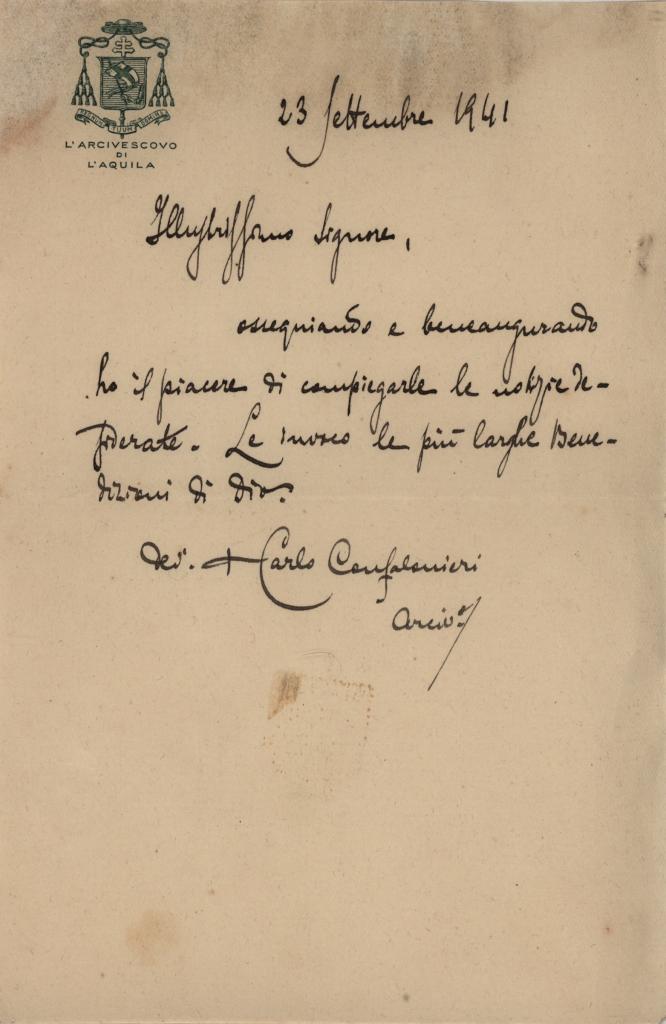 L'ARCIVESCOVO
DI
L'AQUILA
23 Settembre 1941
Illustrissimo Signore,
ossequiando e beneaugurando
ho il piacere di compiegarle le notizie de-
siderate. Le invoco le più larghe Bene-
dizioni di Dio.
dev. + Carlo Confalonieri
Arciv.º